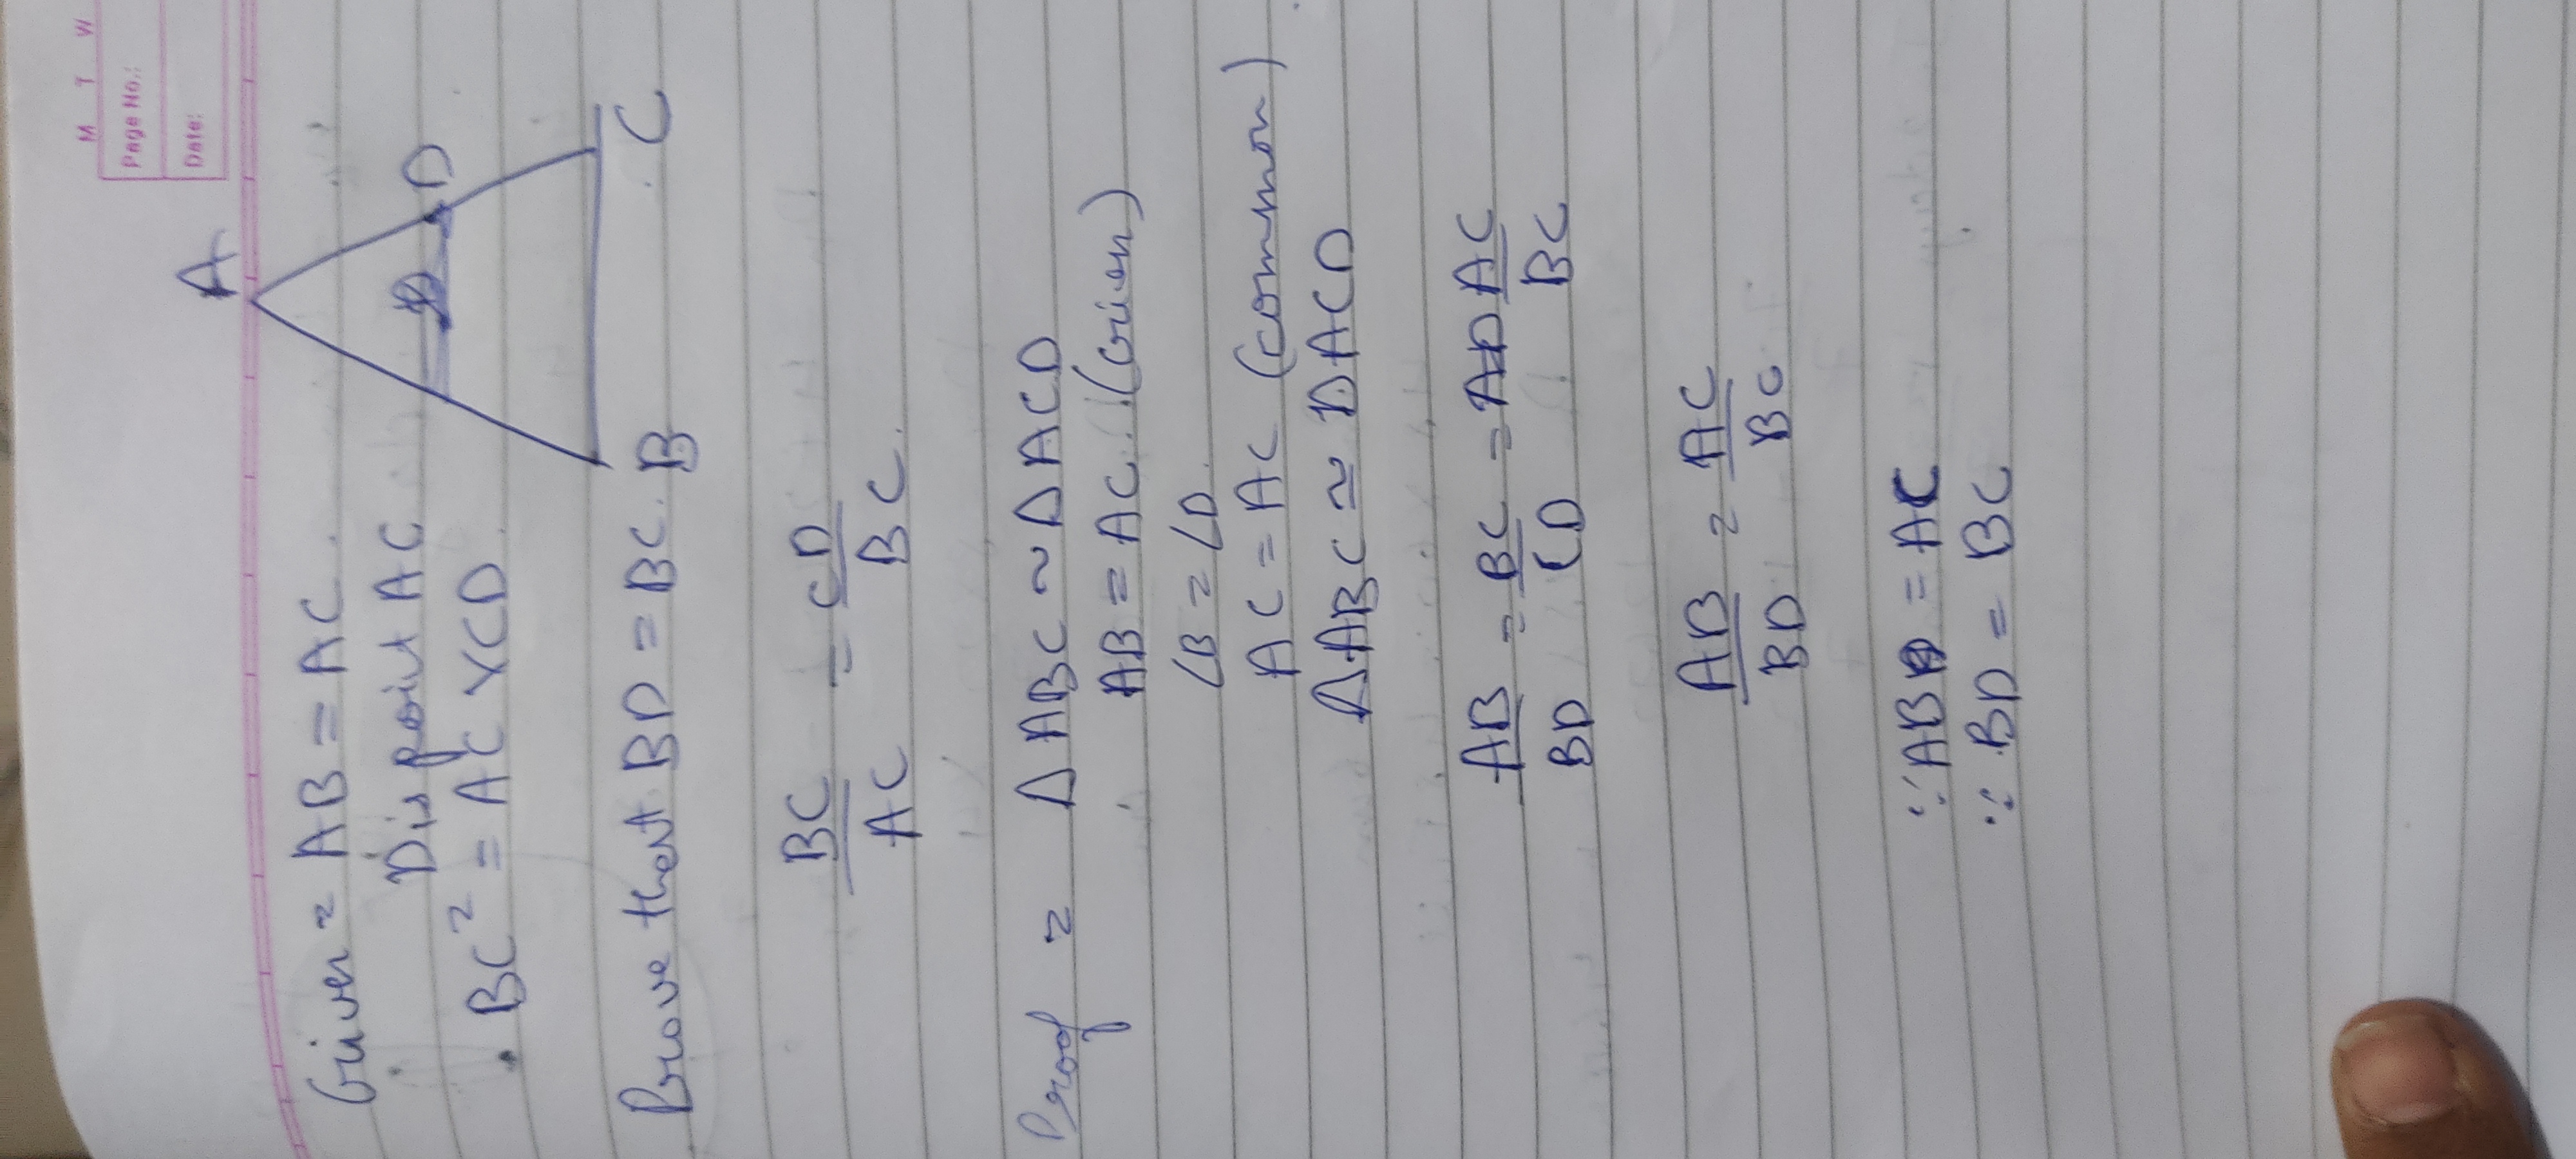 M T W
Page No.:
Date:
A
Given = AB = AC.
D is point AC
D
BC² = AC × CD.
Prove that BD = BC.
B
C
BC/AC = CD/BC.
Proof = Δ ABC ~ Δ ACD
AB = AC. (Given)
∠B = ∠D.
AC = AC (common)
ΔABC ≃ ΔACD
AB/BD = BC/CD = AC/BC
AB/BD = AC/BC
∵ AB = AC
∵ BD = BC